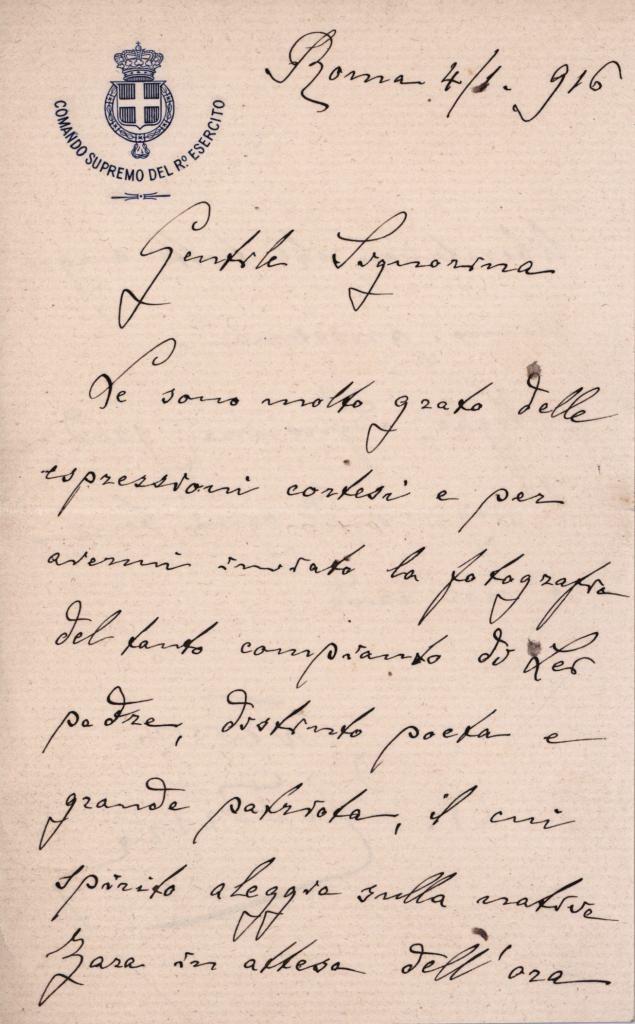 COMANDO SUPREMO DEL Rº ESERCITO
Roma 4/1. 916
Gentile Signorina
Le sono molto grato delle
espressioni cortesi e per
avermi inviato la fotografia
del tanto compianto di Lei
padre, distinto poeta e
grande patriota, il cui
spirito aleggia sulla nativa
Zara in attesa dell'ora